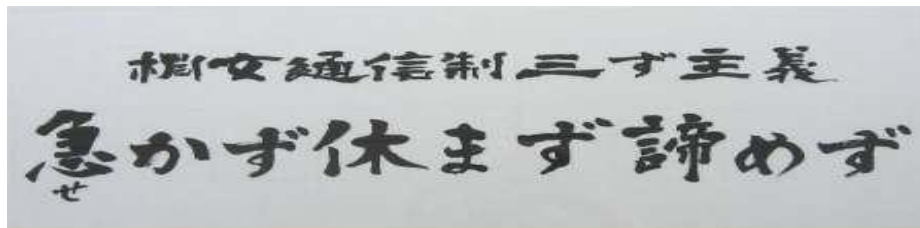 樹女通信制三ず主義
急かず休まず諦めず
せ